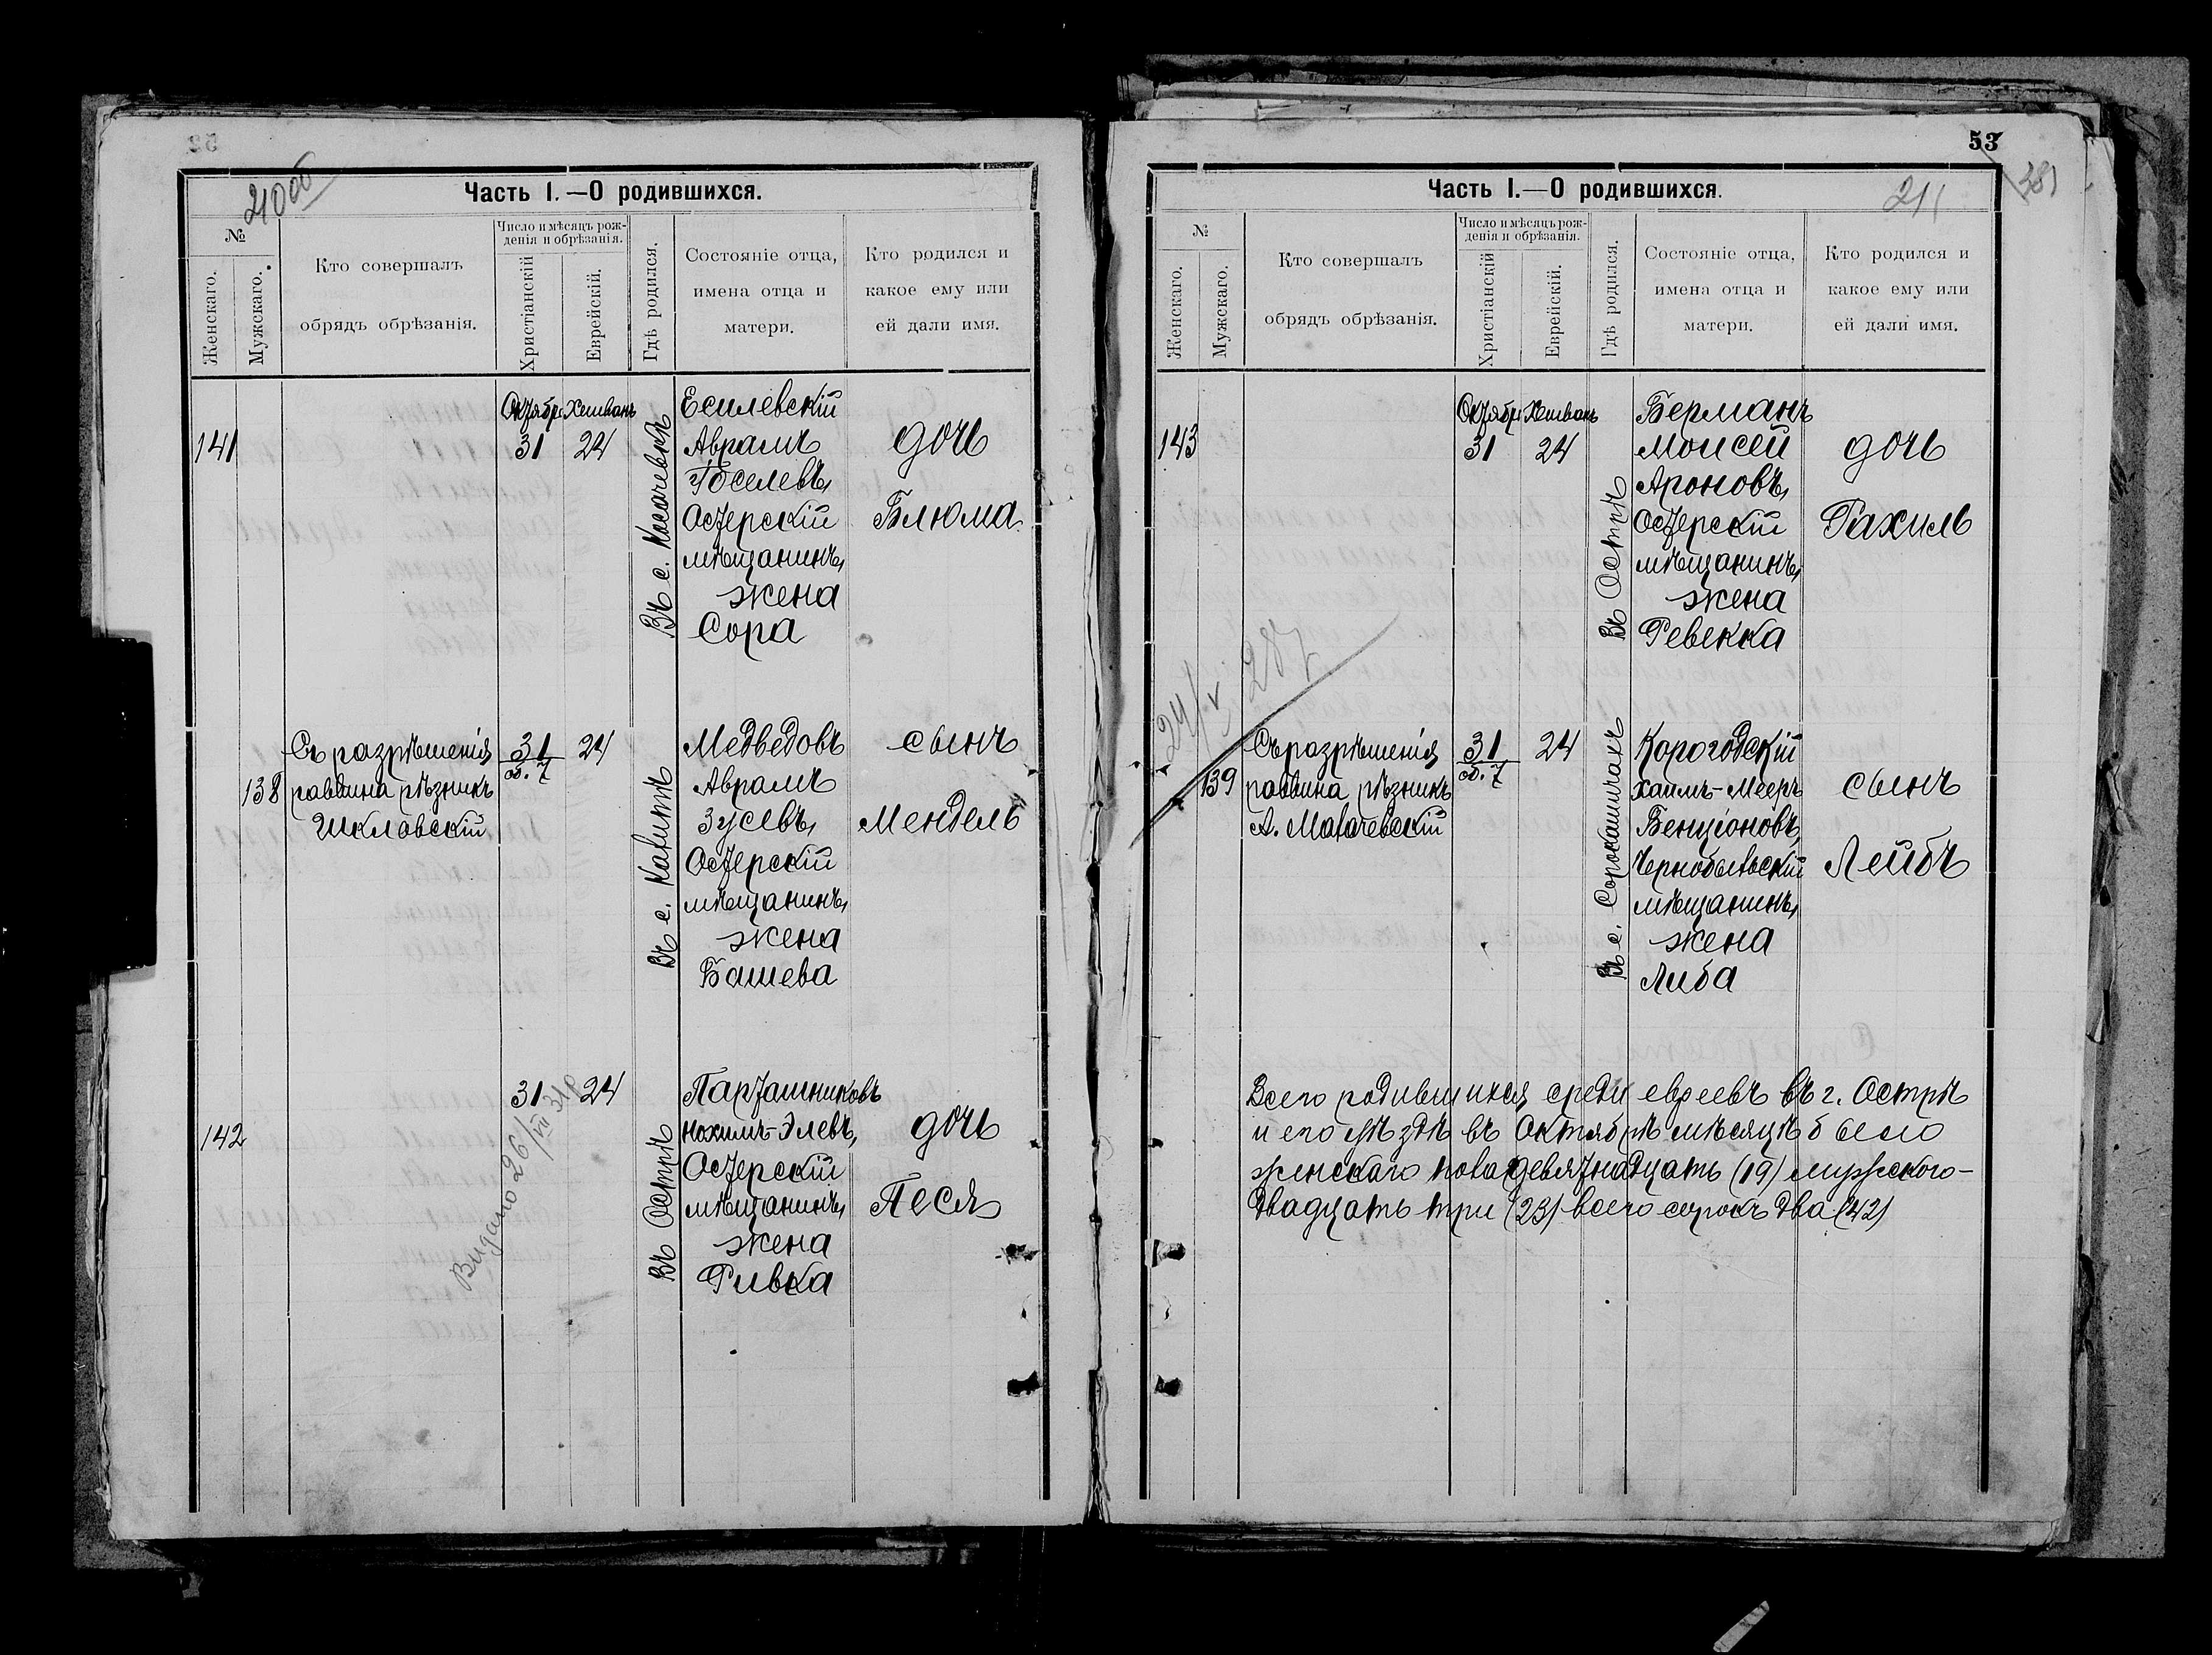 210об
Часть I.—О родившихся.
№
Женскаго.
Мужскаго.
Кто совершалъ
обрядъ обрѣзанія.
Число и мѣсяцъ рож-
денія и обрѣзанія.
Христіанскій
Еврейскій.
Гдѣ родился.
Состояніе отца,
имена отца и
матери.
Кто родился и
какое ему или
ей дали имя.
141
Октябрь Хешванъ
31 24
Въ с. Косачевкѣ
Есилевскій
Аврамъ
Іоселевъ,
Остерскій
мѣщанинъ,
жена
Сора
дочь
Блюма
138
Съ разрѣшенія
раввина рѣзникъ
Шкловскій
31 24
об. 7
Въ с. Калитѣ
Медведовъ
Аврамъ
Зусевъ,
Остерскій
мѣщанинъ,
жена
Башева
сынъ
Мендель
142
31 24
Выдано 26/VII 31 р
Въ Острѣ
Парташниковъ
Нохимъ-Элевъ,
Остерскій
мѣщанинъ,
жена
Ривка
дочь
Песя
53
211
Часть I.—О родившихся.
№
Женскаго.
Мужскаго.
Кто совершалъ
обрядъ обрѣзанія.
Число и мѣсяцъ рож-
денія и обрѣзанія.
Христіанскій
Еврейскій.
Гдѣ родился.
Состояніе отца,
имена отца и
матери.
Кто родился и
какое ему или
ей дали имя.
143
Октябрь Хешванъ
31 24
Въ Острѣ
Берманъ
Моисей
Ароновъ,
Остерскій
мѣщанинъ,
жена
Ревекка
дочь
Рахиль
139
Съ разрѣшенія
раввина рѣзникъ
А. Магачевскій
31 24
об. 7
Въ с. Сорокошичахъ
Корогодскій
Хаимъ-Мееръ
Бенціоновъ,
Чернобыльскій
мѣщанинъ,
жена
Либа
сынъ
Лейбъ
Всего родившихся среди евреевъ въ г. Острѣ
и его уѣздѣ въ Октябрѣ мѣсяцѣ было
женскаго пола девятнадцать (19) мужского-
двадцать три (23) всего сорокъ два (42)